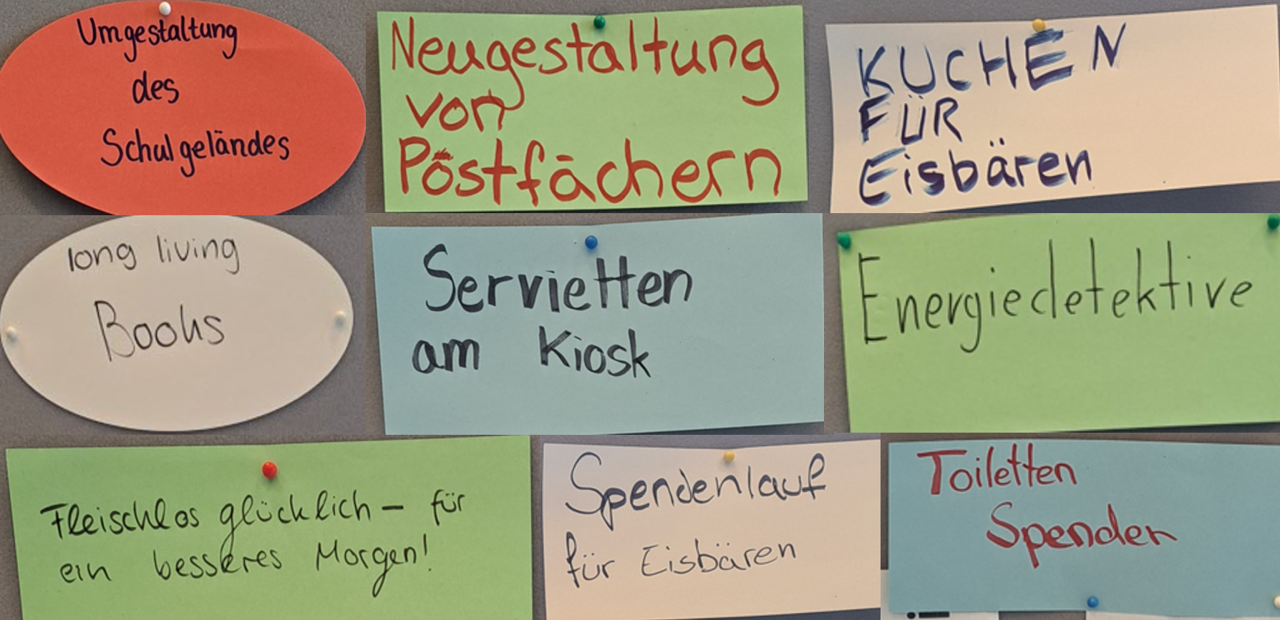 Umgestaltung
des
Schulgeländes
Neugestaltung
von
Postfächern
KUCHEN
FÜR
Eisbären
long living
Books
Servietten
am Kiosk
Energiedetektive
Fleischlos glücklich – für
ein besseres Morgen!
Spendenlauf
für Eisbären
Toiletten
Spender